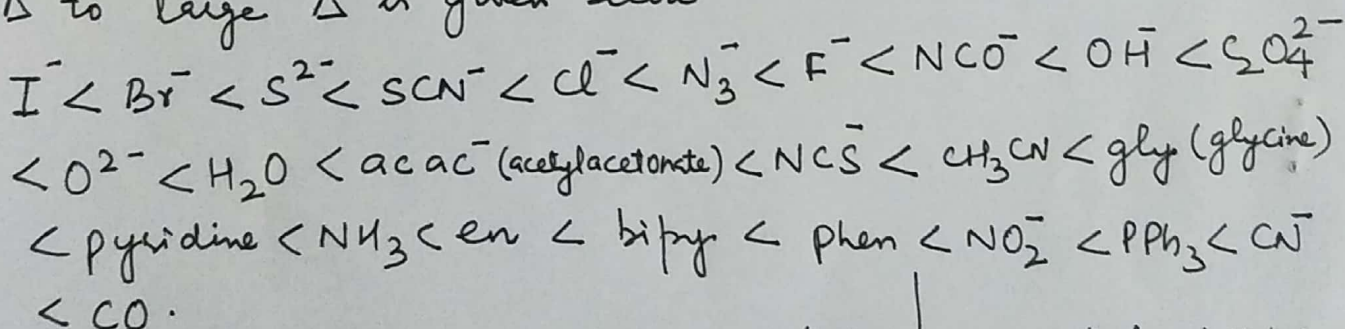 Δ to large Δ is given
I⁻ < Br⁻ < S²⁻ < SCN⁻ < Cl⁻ < N₃⁻ < F⁻ < NCO⁻ < OH⁻ < S₂O₄²⁻
< O²⁻ < H₂O < acac⁻ (acetylacetonate) < NCS⁻ < CH₃CN < gly (glycine)
< pyridine < NH₃ < en < bipy < phen < NO₂⁻ < PPh₃ < CN⁻
< CO.